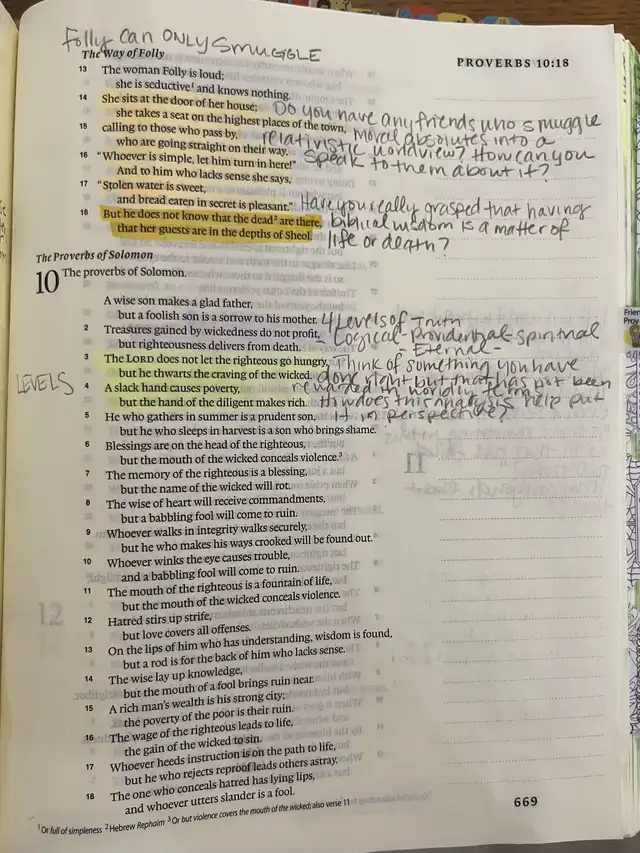 Folly can ONLY SMUGGLE
The Way of Folly
PROVERBS 10:18
13 The woman Folly is loud;
she is seductive¹ and knows nothing.
14 She sits at the door of her house;
she takes a seat on the highest places of the town,
15 calling to those who pass by,
who are going straight on their way.
16 "Whoever is simple, let him turn in here!"
And to him who lacks sense she says,
17 "Stolen water is sweet,
and bread eaten in secret is pleasant."
18 But he does not know that the dead² are there,
that her guests are in the depths of Sheol.
Do you have any friends who smuggle
moral absolutes into a
relativistic worldview? How can you
speak to them about it?
Have you really grasped that having
biblical wisdom is a matter of
life or death?
The Proverbs of Solomon
10 The proverbs of Solomon.
A wise son makes a glad father,
but a foolish son is a sorrow to his mother.
2 Treasures gained by wickedness do not profit,
but righteousness delivers from death.
3 The LORD does not let the righteous go hungry,
but he thwarts the craving of the wicked.
4 A slack hand causes poverty,
but the hand of the diligent makes rich.
5 He who gathers in summer is a prudent son,
but he who sleeps in harvest is a son who brings shame.
LEVELS
4 Levels of Truth
- Logical - Providential - Spiritual
- Eternal -
Think of something you have
done right but that has not been
rewarded in worldly terms.
How does this analysis help put
it in perspective?
6 Blessings are on the head of the righteous,
but the mouth of the wicked conceals violence.³
7 The memory of the righteous is a blessing,
but the name of the wicked will rot.
8 The wise of heart will receive commandments,
but a babbling fool will come to ruin.
9 Whoever walks in integrity walks securely,
but he who makes his ways crooked will be found out.
10 Whoever winks the eye causes trouble,
and a babbling fool will come to ruin.
11 The mouth of the righteous is a fountain of life,
but the mouth of the wicked conceals violence.
12 Hatred stirs up strife,
but love covers all offenses.
13 On the lips of him who has understanding, wisdom is found,
but a rod is for the back of him who lacks sense.
14 The wise lay up knowledge,
but the mouth of a fool brings ruin near.
15 A rich man's wealth is his strong city;
the poverty of the poor is their ruin.
16 The wage of the righteous leads to life,
the gain of the wicked to sin.
17 Whoever heeds instruction is on the path to life,
but he who rejects reproof leads others astray.
18 The one who conceals hatred has lying lips,
and whoever utters slander is a fool.
¹ Or full of simpleness ² Hebrew Rephaim ³ Or but violence covers the mouth of the wicked; also verse 11
669